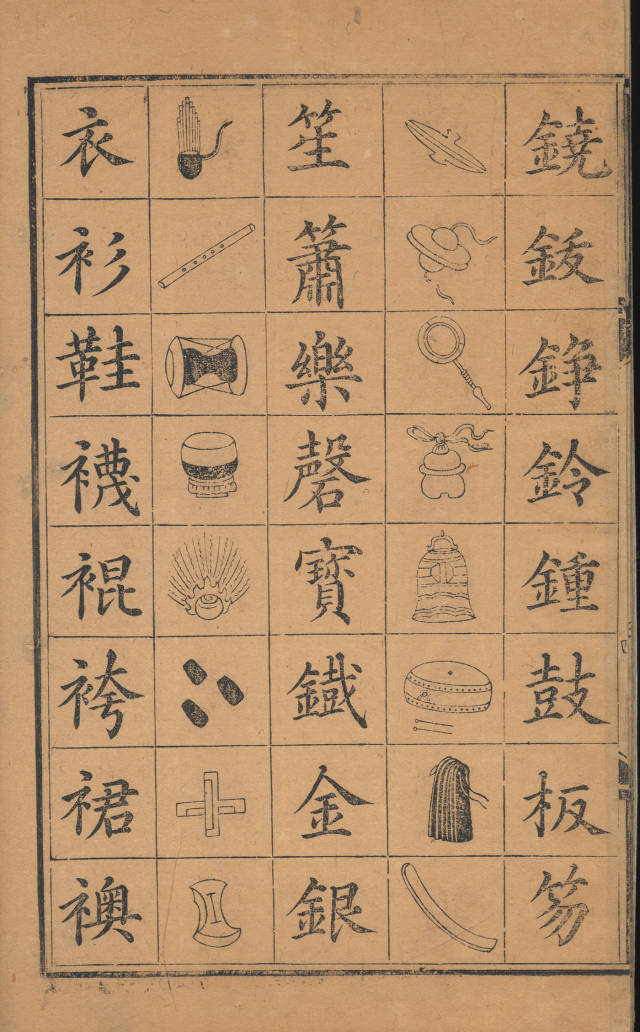 鐃鈸錚鈴鍾鼓板笏
笙簫樂磬寶鐵金銀
衣衫鞋襪裩袴裙襖